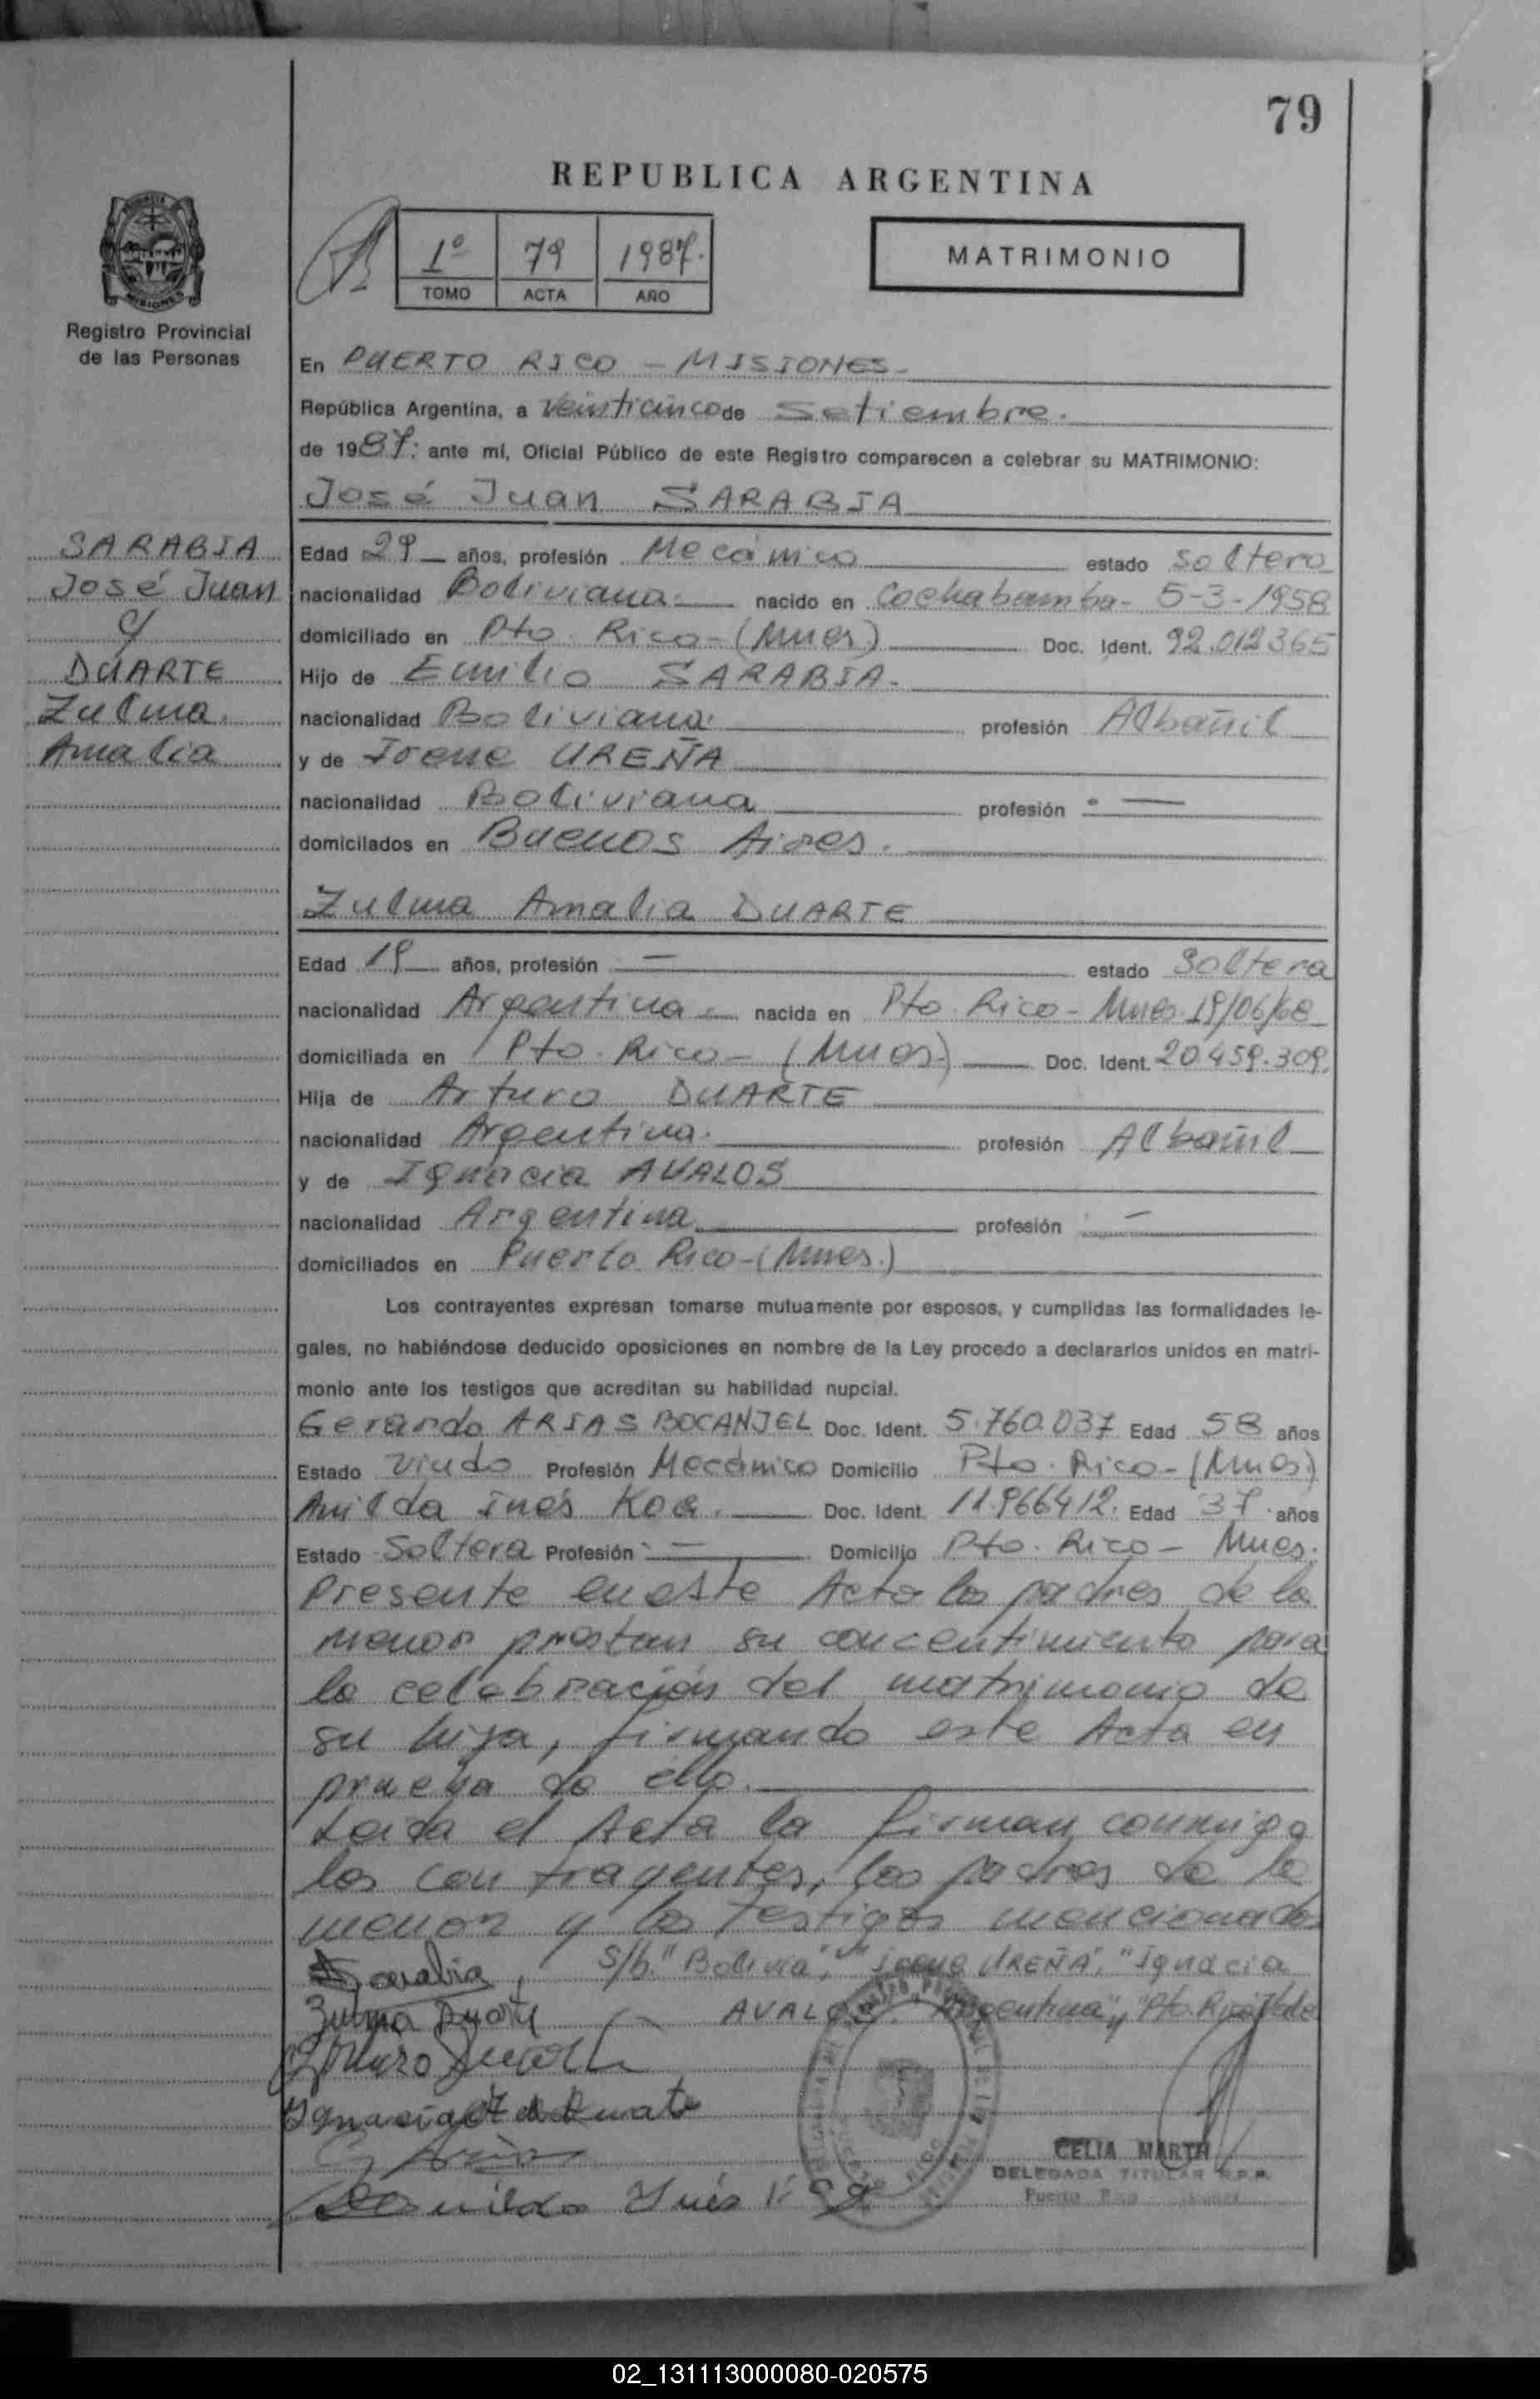 79
REPUBLICA ARGENTINA
1º 79 1987.
TOMO ACTA AÑO
MATRIMONIO
Registro Provincial
de las Personas
En PUERTO RICO - MISIONES.
República Argentina, a Veinticinco de Setiembre.
de 1987. ante mí, Oficial Público de este Registro comparecen a celebrar su MATRIMONIO:
José Juan SARABIA
SARABIA
José Juan
c/
DUARTE
Zulma
Amalia
Edad 29 años, profesión Mecánico estado soltero
nacionalidad Boliviana. nacido en Cochabamba - 5-3-1958
domiciliado en Pto. Rico - (Mnes) Doc. Ident. 92.012365
Hijo de Emilio SARABIA.
nacionalidad Boliviana. profesión Albañil
y de Irene UREÑA
nacionalidad Boliviana profesión . —
domicilados en Buenos Aires.
Zulma Amalia DUARTE
Edad 19 años, profesión — estado Soltera
nacionalidad Argentina nacida en Pto. Rico - Mnes 19/06/68
domiciliada en Pto. Rico - (Mnes.) Doc. Ident. 20.459.309.
Hija de Arturo DUARTE
nacionalidad Argentina. profesión Albañil
y de Ignacia AVALOS
nacionalidad Argentina profesión —
domiciliados en Puerto Rico - (Mnes.)
Los contrayentes expresan tomarse mutuamente por esposos, y cumplidas las formalidades le-
gales, no habiéndose deducido oposiciones en nombre de la Ley procedo a declararlos unidos en matri-
monio ante los testigos que acreditan su habilidad nupcial.
Gerardo ARIAS BOCANJEL Doc. Ident. 5.760.037 Edad 58 años
Estado Viudo Profesión Mecánico Domicilio Pto. Rico - (Mnes)
Anilda Inés Koa. Doc. Ident. 11.966412. Edad 37 años
Estado Soltera Profesión — Domicilio Pto. Rico - Mnes.
Presente en este Acta los padres de la
menor prestan su concentimiento para
la celebración del matrimonio de
su hija, firmando este Acta en
prueba de ello.
Leida el Acta la firman conmigo
los contrayentes, los padres de la
menor y los testigos mencionados
Sarabia, s/b. "Bolivia", "Irene UREÑA", "Ignacia
Zulma Duarte AVALOS. Argentina", "Pto. Rico" Vale
Arturo Duarte
Ignacia A de Duarte
G Arias
Anilda Inés Koa
CELIA MARTH
DELEGADA TITULAR R.P.P.
Puerto Rico
02_131113000080-020575